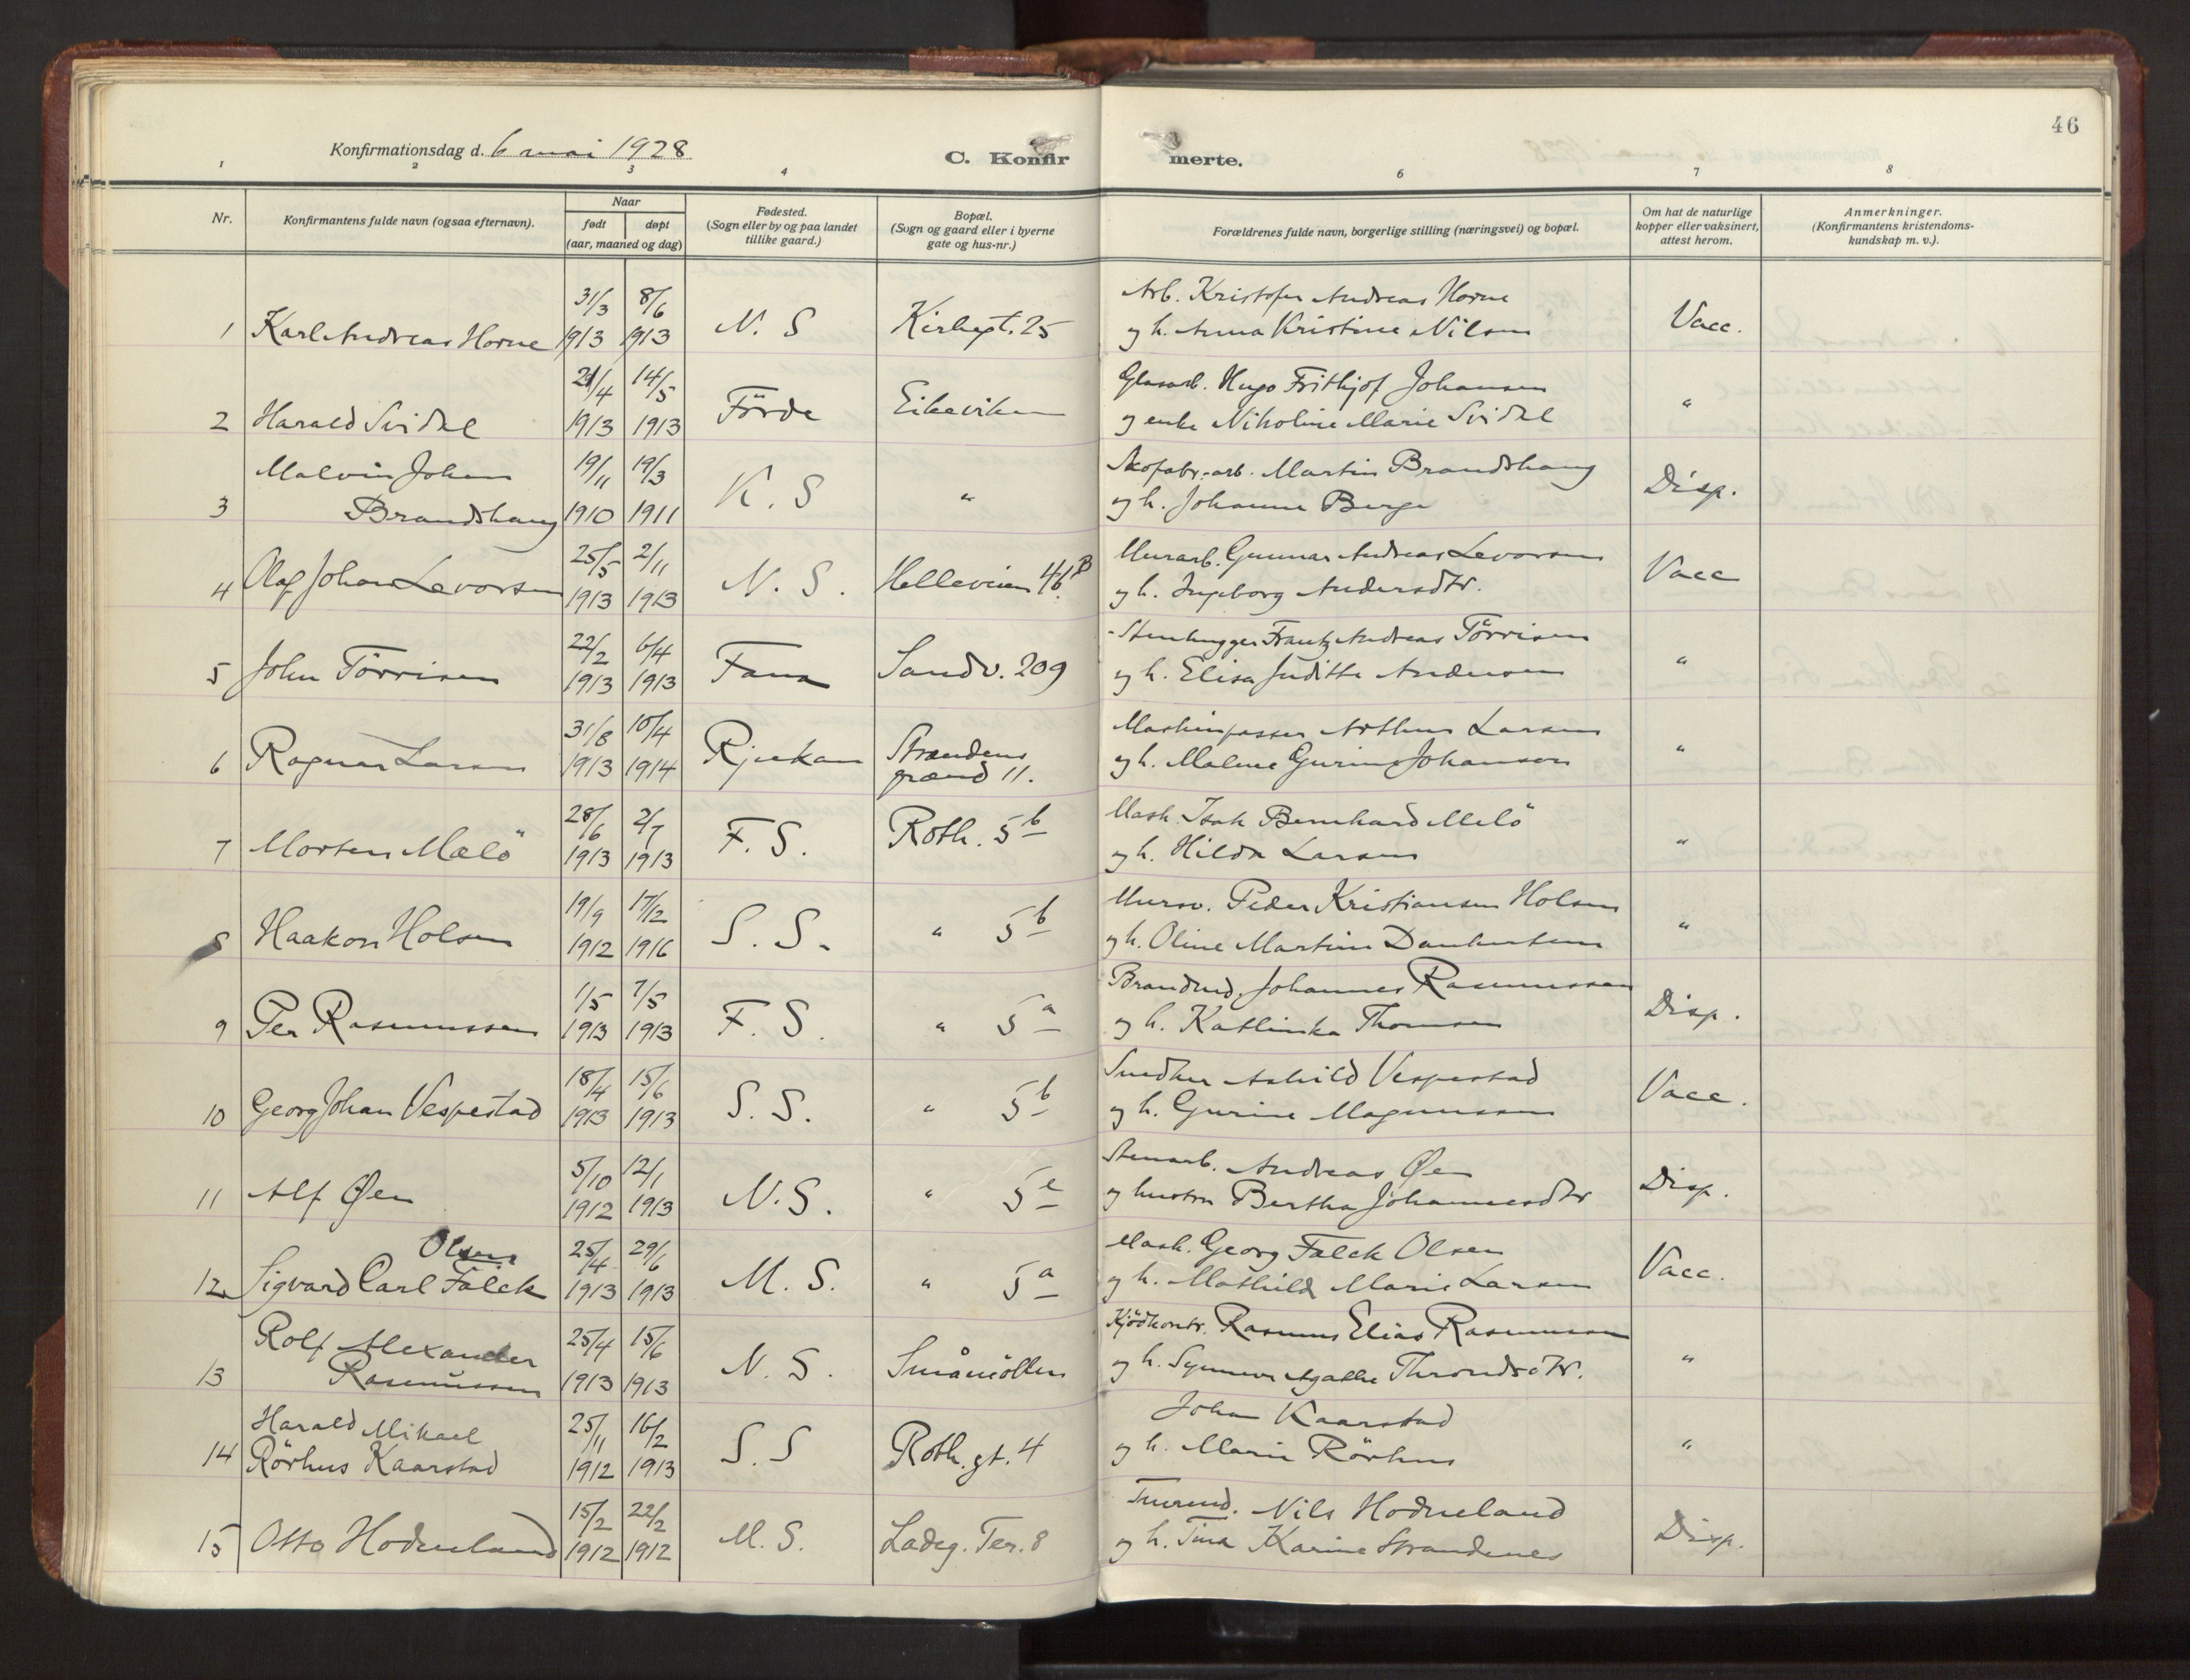 46
Konfirmationsdag d. 6 mai 1928
C. Konfir merte.
1 2 3 4 6 7 8
Nr.
Konfirmantens fulde navn (ogsaa efternavn).
Naar
født døpt
(aar, maaned og dag)
Fødested.
(Sogn eller by og paa landet
tillike gaard.)
Bopæl.
(Sogn og gaard eller i byerne
gate og hus-nr.)
Forældrenes fulde navn, borgerlige stilling (næringsvei) og bopæl.
Om hat de naturlige
kopper eller vaksinert,
attest herom.
Anmerkninger.
(Konfirmantens kristendoms-
kundskap m. v.).
31/3 8/6 Arb. Kristofer Andreas Horne
1 Karl Andreas Horne 1913 1913 N. S Kirkegt. 25 og h. Anna Kristine Nilsen Vacc.
21/4 14/5 Glasarb. Hugo Frithjof Johansen
2 Harald Svidal 1913 1913 Förde Eikeviken og enke Nikoline Marie Svidal "
Malvin Johan 19/11 19/3 Skofabr.-arb. Martin Brandshaug
3 Brandshaug 1910 1911 K. S " og h. Johanne Berge Disp.
25/5 2/11 Murarb. Gunnar Andreas Levorsen
4 Olaf Johan Levorsen 1913 1913 N. S. Helleveien 46B og h. Ingeborg Andersdtr. Vacc
22/2 6/4 Stenhugger Frantz Andreas Törrisen
5 John Törrisen 1913 1913 Fana Sandv. 209 og h. Elisa Judithe Andersen "
31/8 10/4 Maskinpasser Arthur Larsen
6 Ragnar Larsen 1913 1914 Rjukan Strandens grænd 11. og h. Malene Gurine Johansen "
28/6 2/7 Mask. Isak Bernhard Melö
7 Morten Mælö 1913 1913 F. S. Roth. 5b og h. Hilda Larsen "
19/9 17/12 Mursv. Peder Kristiansen Holsen
8 Haakon Holsen 1912 1916 S. S. " 5b og h. Oline Martine "
1/5 7/5 Brandmd. Johannes Rasmussen
9 Per Rasmussen 1913 1913 F. S. " 5a og h. Kathinka Thomsen Disp.
18/4 15/6 Snedker Askild Vespestad
10 Georg Johan Vespestad 1913 1913 S. S. " 5b og h. Gurine Magnussen Vacc.
5/10 12/1 Stenarb. Andreas Øen
11 Alf Øen 1912 1913 N. S. " 5c og hustru Bertha Johannesdtr Disp.
Olsen 25/4 29/6 Mask. Georg Falck Olsen
12 Sigvard Carl Falck 1913 1913 M. S. " 5a og h. Mathilde Marie Larsen Vacc.
Rolf Alexander 25/4 15/6 Kjödkontr. Rasmus Elias Rasmussen
13 Rasmussen 1913 1913 N. S. Småmöllen og h. Synneve Agathe Throndsdtr. "
Harald Mikael 25/11 16/2 Johan Kaarstad
14 Rörhus Kaarstad 1912 1913 S. S Roth. gt. 4 og h. Marie Rörhus "
15/2 22/2 Nils Hodneland
15 Otto Hodneland 1912 1912 M. S. Ladeg. Ter. 8 og h. Tina Karine Strandenes Disp.